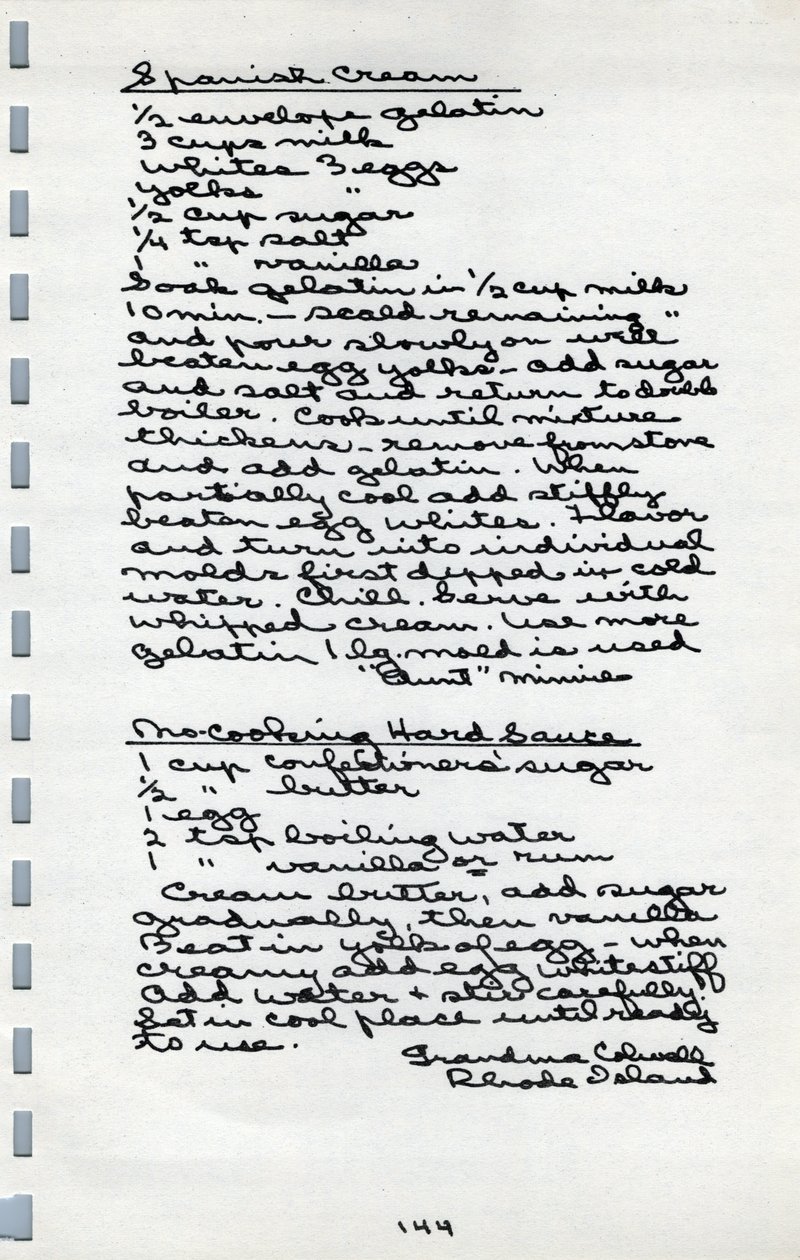 Spanish Cream
1/2 envelope gelatin
3 cups milk
Whites 3 eggs
yolks "
1/2 cup sugar
1/4 tsp salt
1 " vanilla
Soak gelatin in 1/2 cup milk
10 min. – scald remaining "
and pour slowly on well
beaten egg yolks – add sugar
and salt and return to double
boiler. Cook until mixture
thickens – remove from stove
and add gelatin. When
partially cool add stiffly
beaten egg whites. Flavor
and turn into individual
molds first dipped in cold
water. Chill. Serve with
whipped cream. Use more
gelatin 1 lg. mold is used
"Aunt" Minnie
No-Cooking Hard Sauce
1 cup confectioners' sugar
1/2 " butter
1 egg
2 tsp boiling water
1 " vanilla or rum
Cream butter, add sugar
gradually, then vanilla
Beat in yolk of egg – when
creamy add egg white stiff
Add water + stir carefully.
Set in cool place until ready
to use.
Grandma Colwell
Rhode Island
144